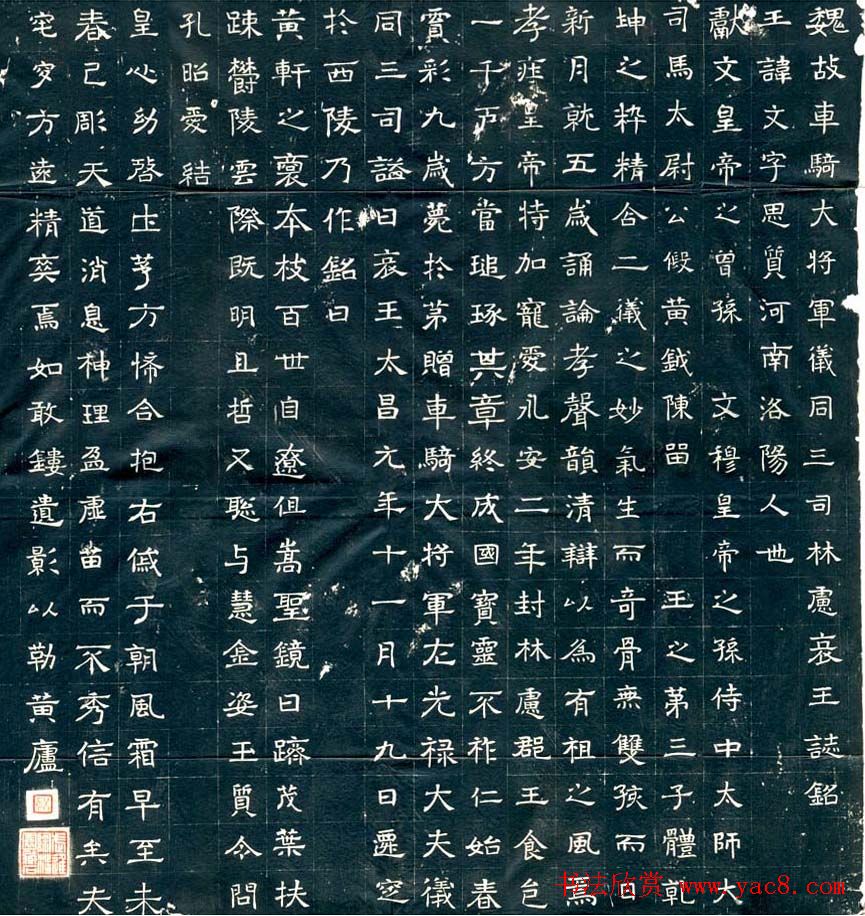 魏故車騎大将軍儀同三司林慮哀王誌銘
王諱文字思質河南洛陽人也
獻文皇帝之曽孫 文穆皇帝之孫侍中太師大
司馬太尉公假黄鉞陳留 王之第三子體乹
坤之粹精合二儀之妙氣生而奇骨無雙孩而日
新月就五歳誦論孝聲韻清辯以為有祖之風焉
孝莊皇帝特加寵愛永安二年封林慮郡王食邑
一千戸方當琨琢其章終成國寶靈不祚仁始春
賓彩九歳薨於苐贈車騎大将軍左光禄大夫儀
同三司謚曰哀王太昌元年十一月十九日遷窆
於西陵乃作銘曰
黄軒之裔本枝百世自遼徂嵩聖鏡日躋茂葉扶
踈欝陵雲際既明且哲又聡与慧金姿玉質令問
孔昭愛結
皇心幼啓茅方悕合抱右戚于朝風霜早至未
春已彫天道消息神理盈虚苗而不秀信有矣夫
窀穸方遠精爽焉如敢鏤遺影以勒黄廬
书法欣赏 www.yac8.com